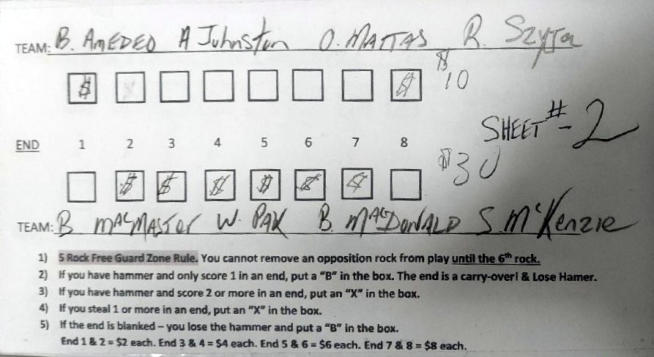 TEAM: B. AMEDEO A Johnston O. MATTAS R. Szyja
$ $ $10
SHEET # - 2
END 1 2 3 4 5 6 7 8
$30
$ $ $ $ $ $
TEAM: B MACMASTER W. PAK B. MACDONALD S. McKenzie
1) 5 Rock Free Guard Zone Rule. You cannot remove an opposition rock from play until the 6th rock.
2) If you have hammer and only score 1 in an end, put a "B" in the box. The end is a carry-over! & Lose Hamer.
3) If you have hammer and score 2 or more in an end, put an "X" in the box.
4) If you steal 1 or more in an end, put an "X" in the box.
5) If the end is blanked – you lose the hammer and put a "B" in the box.
End 1 & 2 = $2 each. End 3 & 4 = $4 each. End 5 & 6 = $6 each. End 7 & 8 = $8 each.